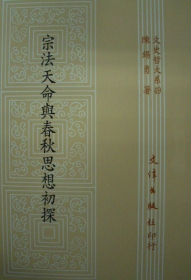 文史哲大系119
陳錫勇著
宗法天命與春秋思想初探
文津出版社印行